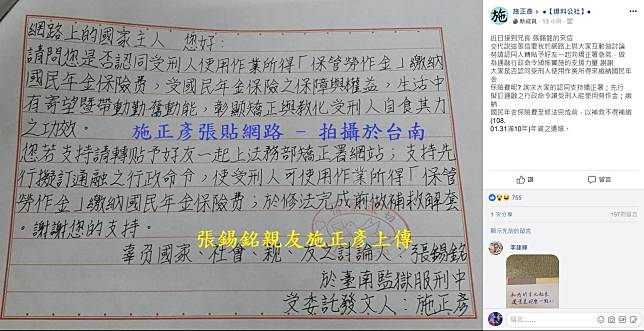 網路上的國家主人 您好:
請問您是否認同受刑人使用作業所得「保管勞作金」繳納
國民年金保險費,受國民年金保險之保障與權益,生活中
有寄望暨帶動勤奮動能,彰顯矯正與教化受刑人自食其力
之功效。
施正彥張貼網路 - 拍攝於台南
您若支持請轉貼予好友一起上法務部矯正署網站;支持先
行擬訂通融之行政命令,使受刑人可使用作業所得「保管
勞作金」繳納國民年金保險費;於修法完成前做補救解套
。謝謝您的支持。
張錫銘親友施正彥上傳
辜負國家、社會、親、友之討論人:張錫銘
於臺南監獄服刑中
受委託發文人:施正彥
施
施正彥 ▸ ●【爆料公社】●
新成員 · 13 小時
近日接到兄長 張錫銘的來信
交代說這張信要我於網路上與大家互動做討論
勞請認同人轉貼予好友一起向矯正署急籲,做
為通融行政命令頒佈實施的支援力量 謝謝
大家是否認同受刑人使用作業所得來繳納國民年
金
保險費呢?詢求大家的認同支持矯正署;先行
擬訂通融之行政命令讓受刑人能使用勞作金;繳
納
國民年金保險費至修法完成前,以補救不得補繳
(108.
01.31滿10年)年資之遺憾。
讚
留言
755
1 次分享
197則留言
顯示先前的留言
李建輝
留言......